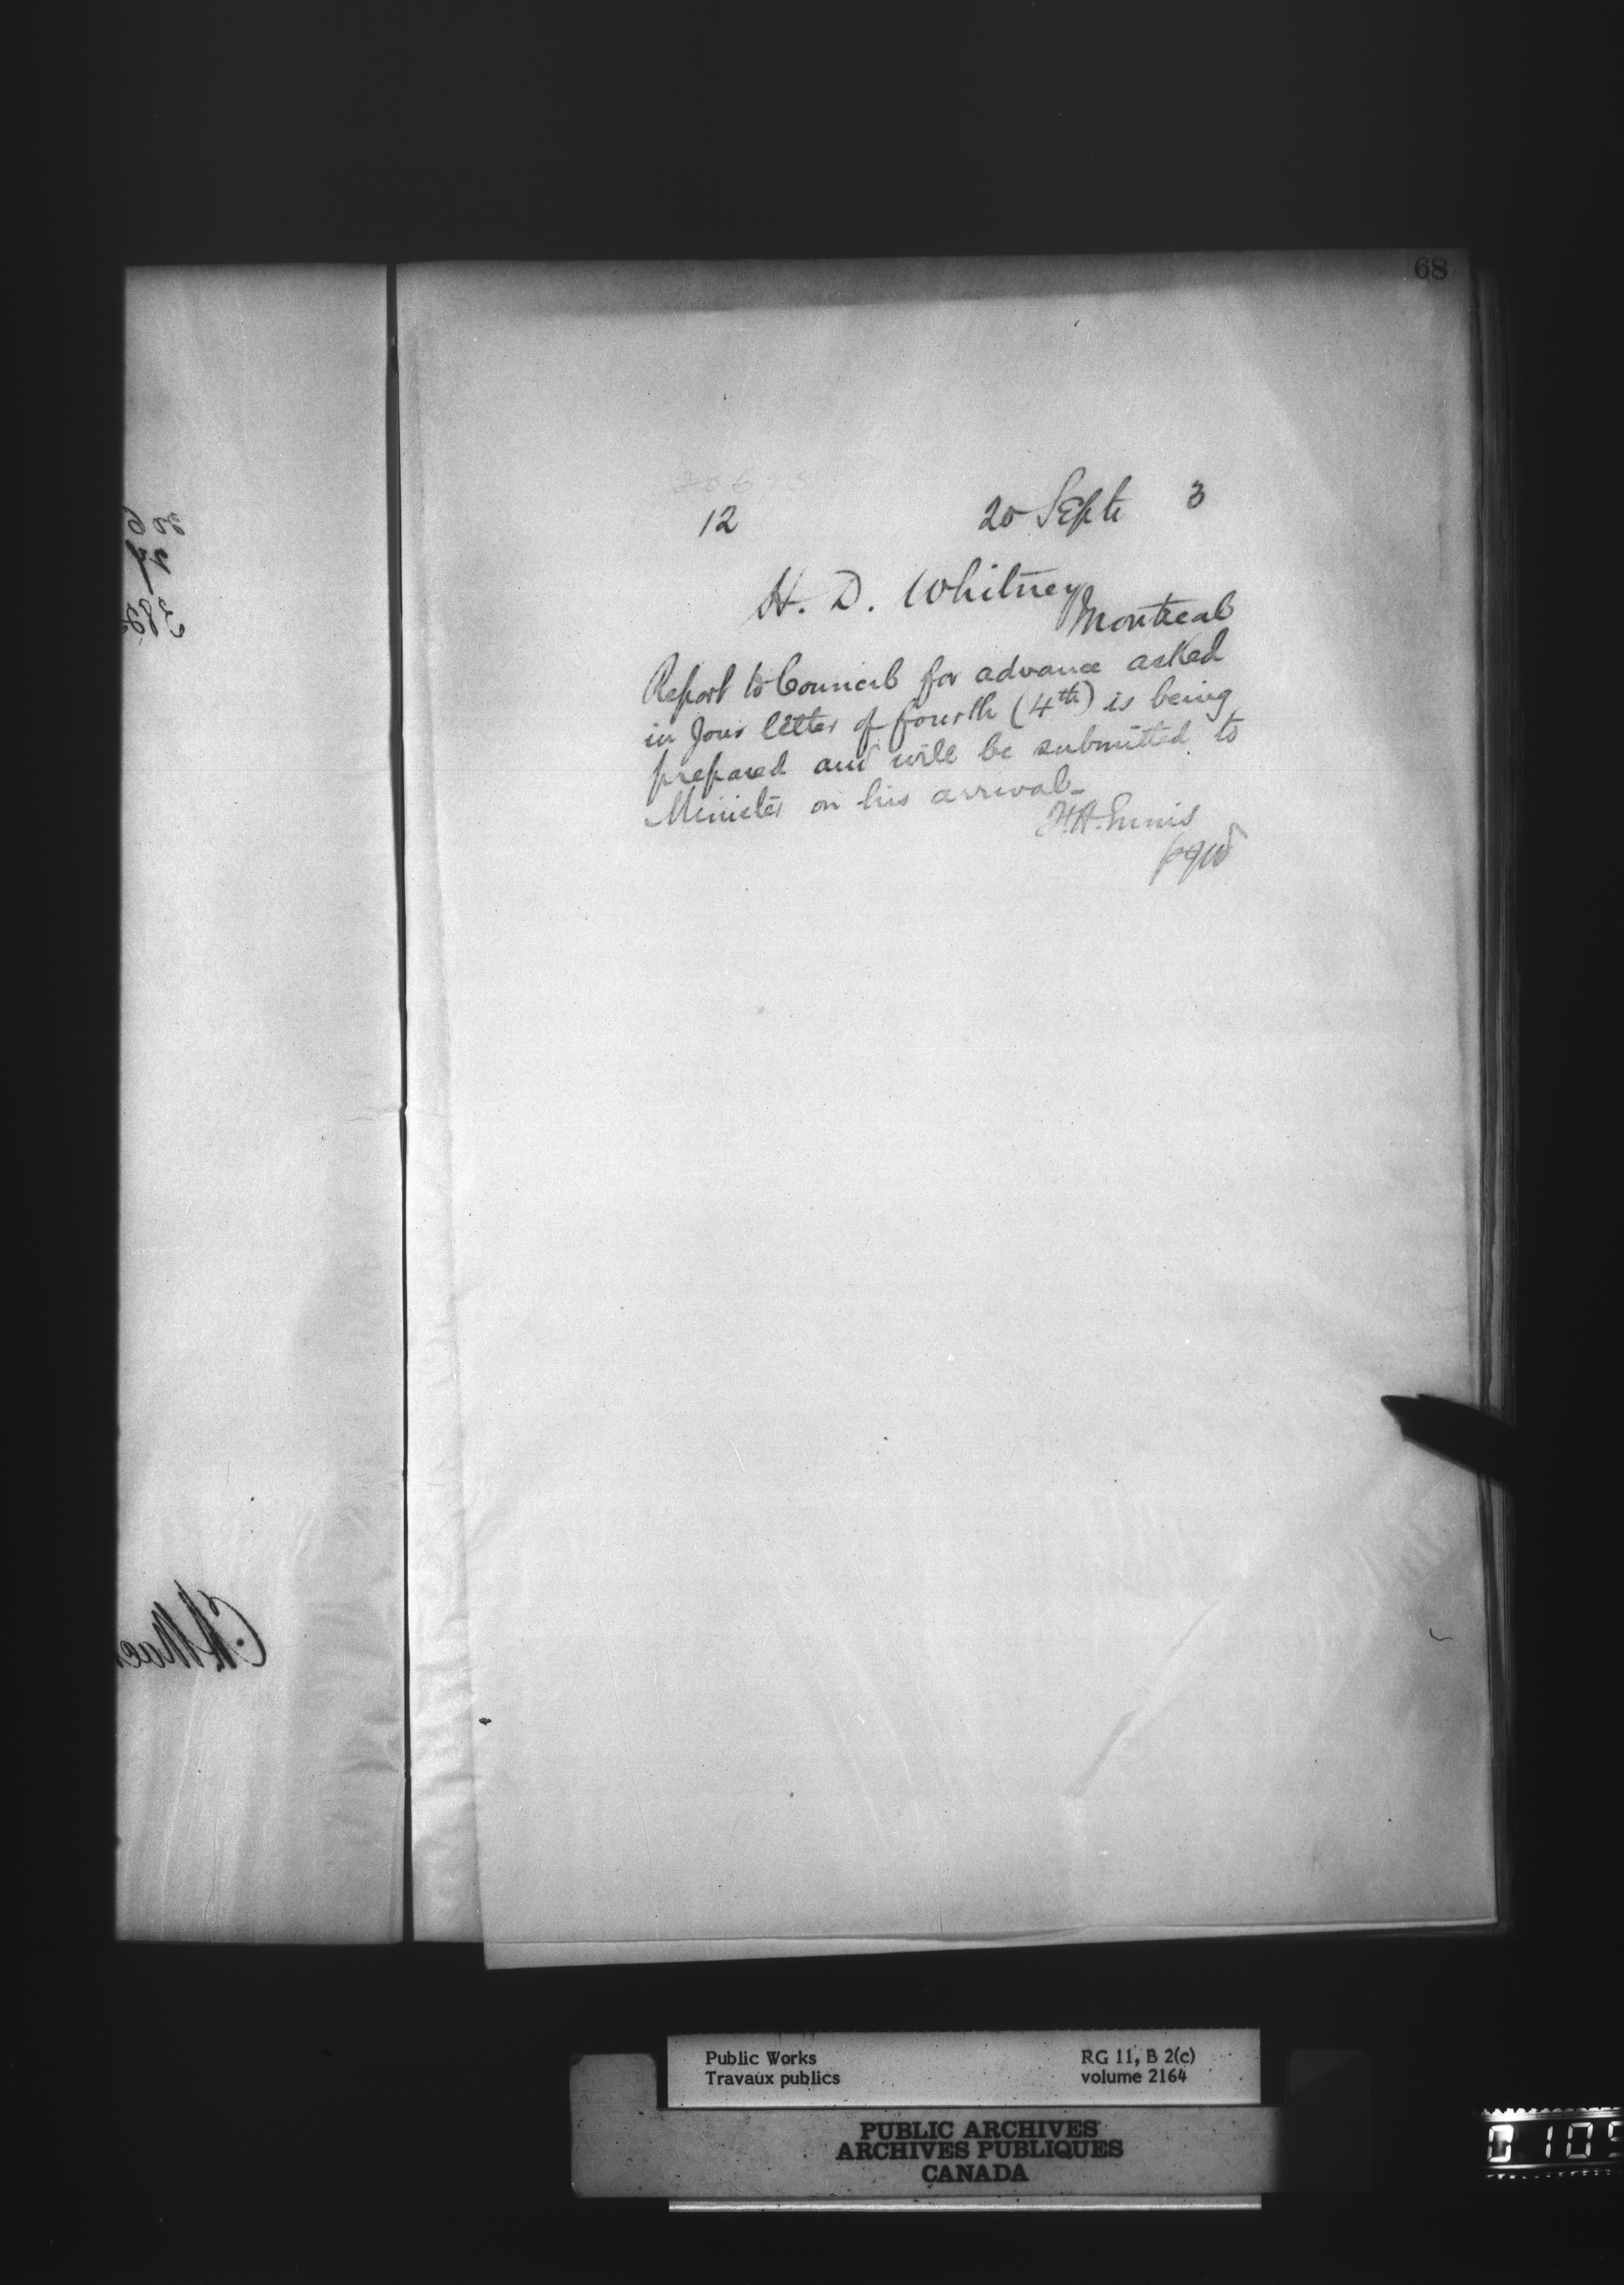 68
12 20 Septr 3
H. D. Whitney
Montreal
Report to Council for advance asked
in your letter of fourth (4th) is being
prepared and will be submitted to
Minister on his arrival-
F.H. Ennis
Public Works
Travaux publics
RG 11, B 2(c)
volume 2164
PUBLIC ARCHIVES
ARCHIVES PUBLIQUES
CANADA